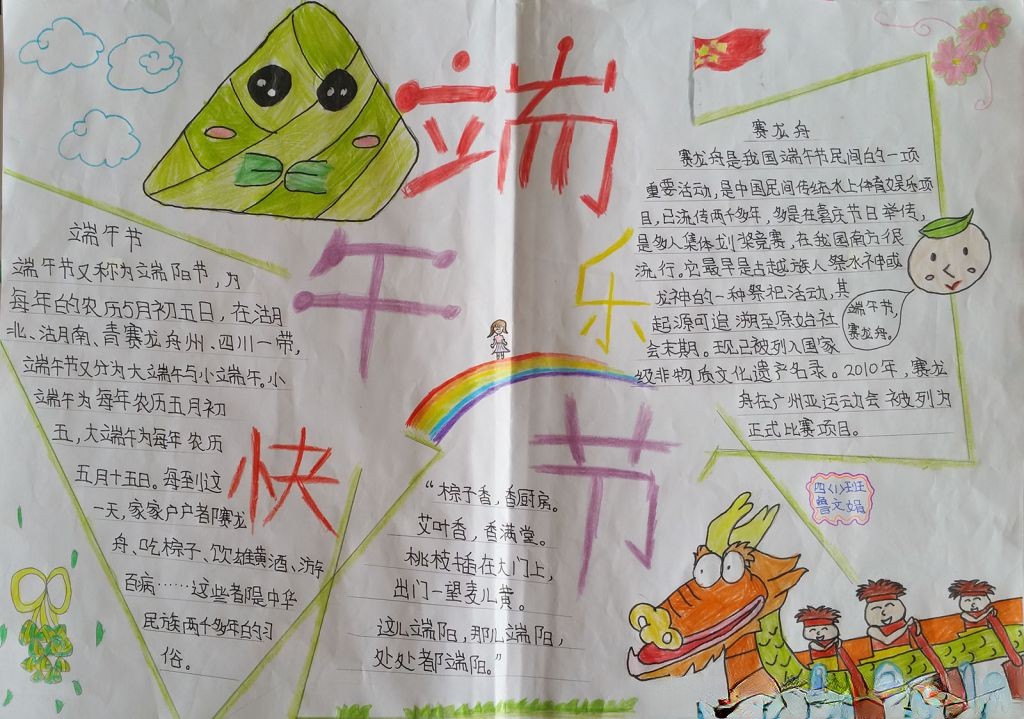 端午节快乐
端午节
端午节又称为端阳节，为
每年的农历5月初五日，在沽月
北、沽月南、青赛龙舟州、四川一带，
端午节又分为大端午与小端午。小
端午为每年农历五月初
五，大端午为每年农历
五月十五日。每到这
一天，家家户户都赛龙
舟、吃棕子、饮雄黄酒、游
百病……这些都是中华
民族两千多年的习
俗。
“棕子香，香厨房。
艾叶香，香满堂。
桃枝插在大门上，
出门一望麦儿黄。
这儿端阳，那儿端阳，
处处都端阳。”
赛龙舟
赛龙舟是我国端午节民间的一项
重要活动，是中国民间传统水上体育娱乐项
目，已流传两千多年，多是在喜庆节日举传，
是多人集体划桨竞赛，在我国南方很
流行。它最早是古越族人祭水神或
龙神的一种祭祀活动，其
起源可追溯至原始社
会末期。现已被列入国家
级非物质文化遗产名录。2010年，赛龙
舟在广州亚运动会被列为
正式比赛项目。
端午节，
赛龙舟。
四〈1〉班
曾文娟